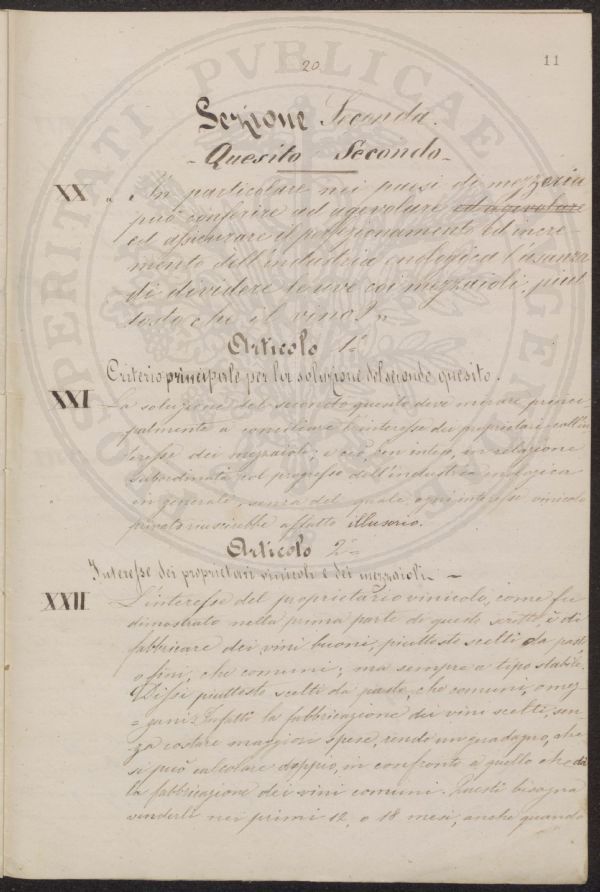 11
20
Sezione Seconda.
- Quesito Secondo -
XX „ In particolare nei paesi di mezzeria
può conferire ad agevolare ed agevolare
ed assicurare il perfezionamento ed incre-
mento dell'industria enologica l'usanza
di dividere le uve coi mezzaioli, piut
tosto che il vino? „
Articolo 1º
Criterio principale per la soluzione del secondo quesito.
XXI La soluzione del secondo quesito deve mirare princi
palmente a conciliare l'interesse dei proprietari coll'in
teresse dei mezzaioli; e ciò, ben inteso, in relazione
subordinata col progresso dell'industria enologica
in generale, senza del quale, ogni interesse vinicolo
privato riuscirebbe affatto illusorio.
Articolo 2º
Interesse dei proprietari vinicoli e dei mezzaioli. -
XXII L'interesse del proprietario vinicolo, come fu
dimostrato nella prima parte di questo scritto, è di
fabbricare dei vini buoni, piuttosto scelti da pasto
o fini, che comuni; ma sempre a tipo stabile.
Dissi piuttosto scelti da pasto, che comuni, o mez-
=zani: Infatti la fabbricazione dei vini scelti, sen-
za costare maggiori spese, rende un guadagno, che
si può calcolare doppio, in confronto a quello che dà
la fabbricazione dei vini comuni. Questi bisogna
venderli nei primi 12, o 18 mesi, anche quando
PROSPERITATI PVBLICAE AVGENDAE